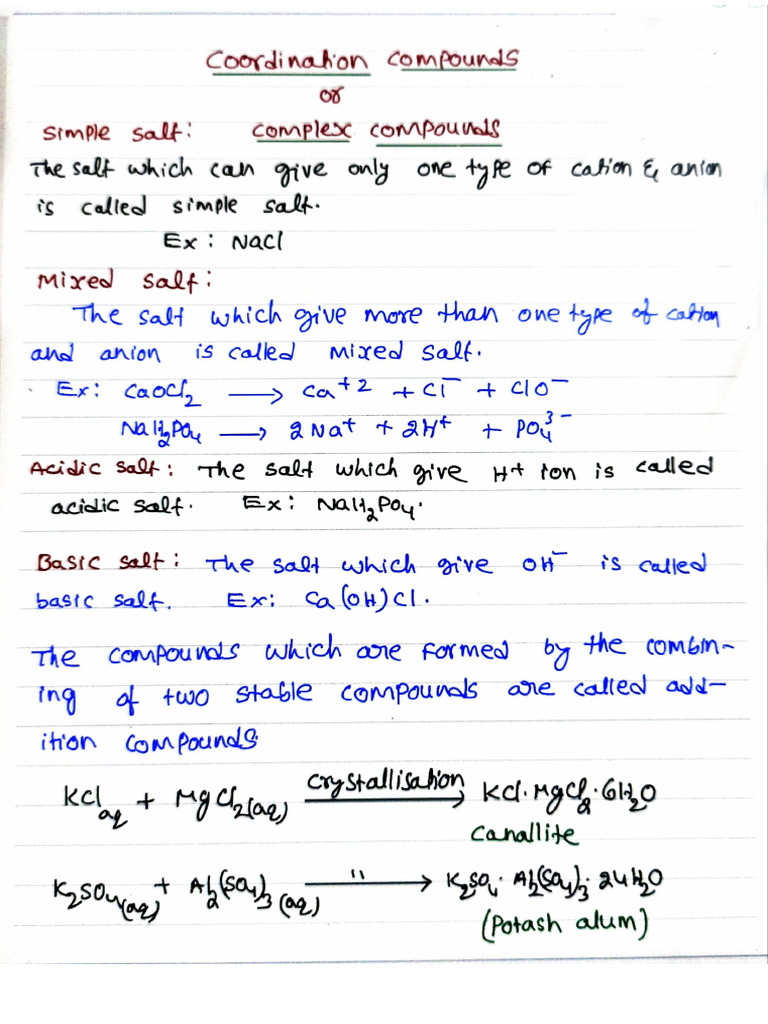 Coordination compounds
or
Simple salt: complex compounds
The salt which can give only one type of cation & anion
is called simple salt.
Ex: NaCl
Mixed salt:
The salt which give more than one type of cation
and anion is called mixed salt.
Ex: CaOCl₂ ⟶ Ca⁺² + Cl⁻ + ClO⁻
NaH₂PO₄ ⟶ 2Na⁺ + 2H⁺ + PO₄³⁻
Acidic salt: The salt which give H⁺ ion is called
acidic salt. Ex: NaH₂PO₄.
Basic salt: The salt which give OH⁻ is called
basic salt. Ex: Ca(OH)Cl.
The compounds which are formed by the combin-
ing of two stable compounds are called add-
ition compounds.
KCl aq + MgCl₂(aq) crystallisation ⟶ KCl·MgCl₂·6H₂O
Canallite
K₂SO₄(aq) + Al₂(SO₄)₃(aq) " ⟶ K₂SO₄·Al₂(SO₄)₃·24H₂O
(Potash alum)